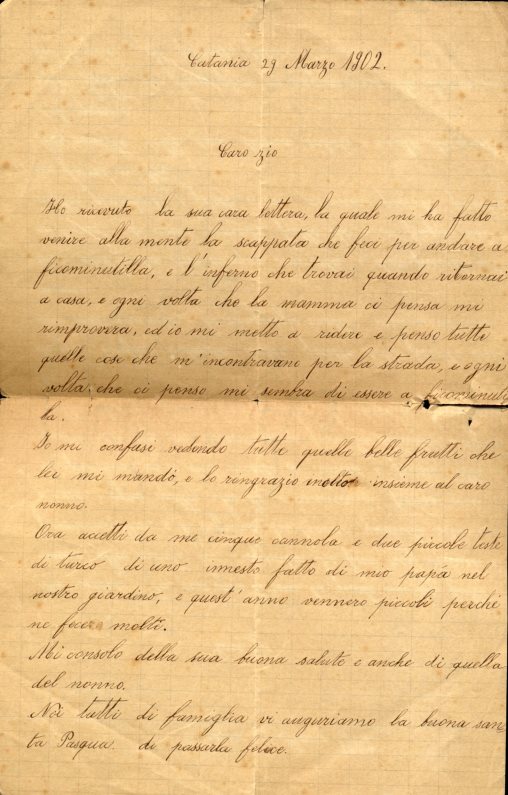 Catania 29 Marzo 1902.
Caro zio
Ho ricevuto la sua cara lettera, la quale mi ha fatto
venire alla mente la scappata che feci per andare a
ficominutilla, e l'inferno che trovai quando ritornai
a casa, e ogni volta che la mamma ci pensa mi
rimprovera, ed io mi metto a ridere e penso tutte
quelle cose che m'incontravano per la strada, e ogni
volta che ci penso mi sembra di essere a ficominutil
la.
Io mi confasi vedendo tutte quelle belle frutti che
lei mi mandó, e lo ringrazio molto insieme al caro
nonno.
Ora accetti da me cinque cannola e due piccole teste
di turco di uno innesto fatto di mio papá nel
nostro giardino, e quest'anno vennero piccoli perché
ne fecero molti.
Mi consolo della sua buona salute e anche di quella
del nonno.
Noi tutti di famiglia vi auguriamo la buona san
ta Pasqua di passarla felice.